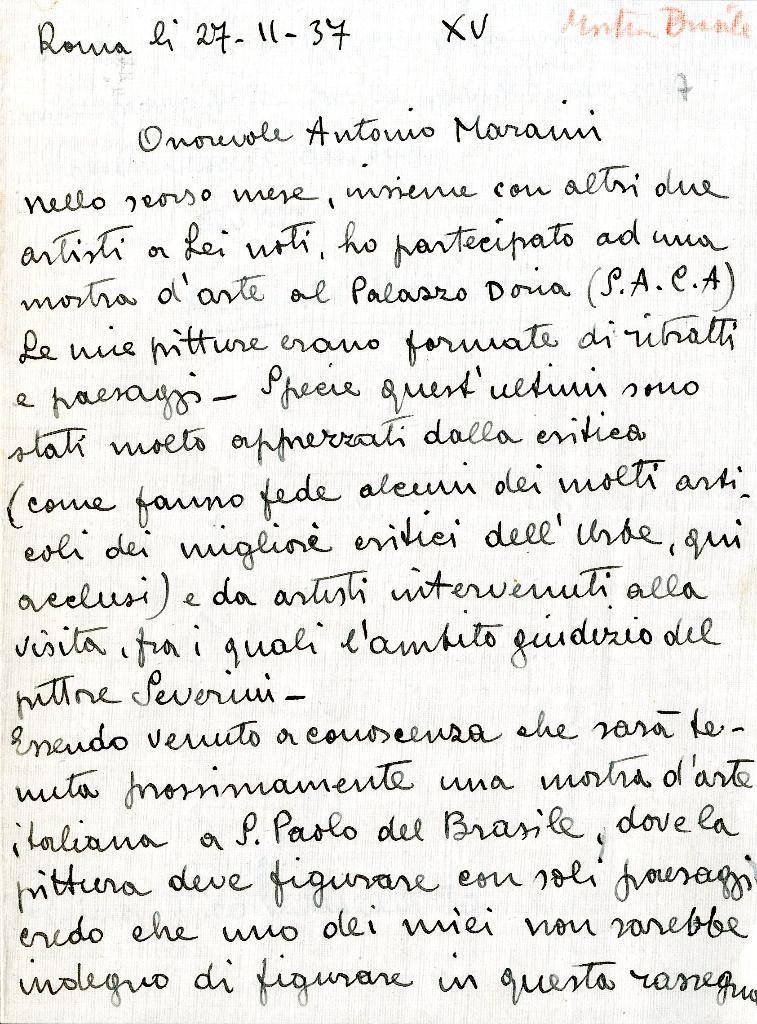 Roma li 27-11-37 XV
Mostra Brasile
7
Onorevole Antonio Maraini
nello scorso mese, insieme con altri due
artisti a Lei noti, ho partecipato ad una
mostra d'arte al Palazzo Doria (S.A.C.A)
Le mie pitture erano formate di ritratti
e paesaggi - Specie quest'ultimi sono
stati molto apprezzati dalla critica
(come fanno fede alcuni dei molti arti-
coli dei migliori critici dell'Urbe, qui
acclusi) e da artisti intervenuti alla
visita, fra i quali l'ambito giudizio del
pittore Severini -
Essendo venuto a conoscenza che sarà te-
nuta prossimamente una mostra d'arte
italiana a S. Paolo del Brasile, dove la
pittura deve figurare con soli paesaggi
credo che uno dei miei non sarebbe
indegno di figurare in questa rassegna